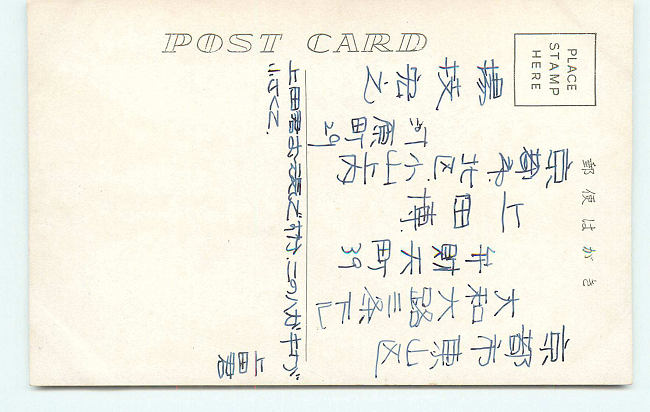 POST CARD
PLACE
STAMP
HERE
郵便はがき
京都市東山区
大和大路三条下ル
弁財天町39
上田博
京都市北区小山上内
河原町29
宏之
上田君お元気で このハガキが
小さくて.
上田君